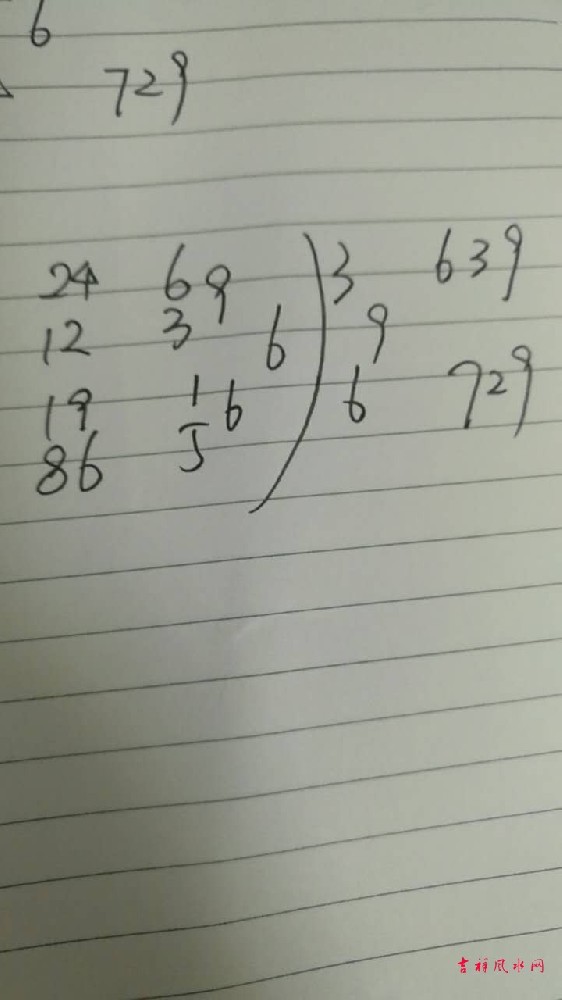 6
729
24 69 ) 3 639
12 3 6 9
19 16 6 729
86 5
吉祥风水网